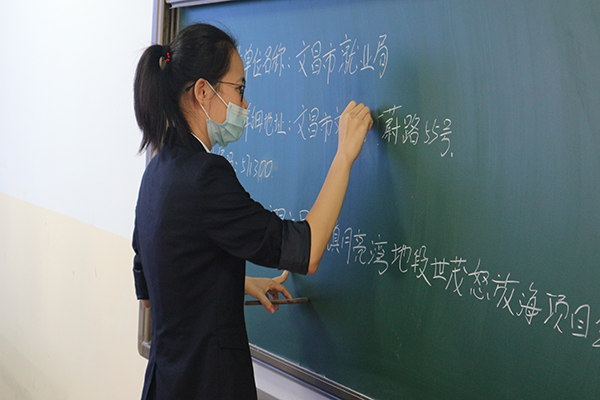 单位名称：文昌市就业局
详细地址：文昌市 蔚路55号.
571300
镇月亮湾地段世茂怒放海项目